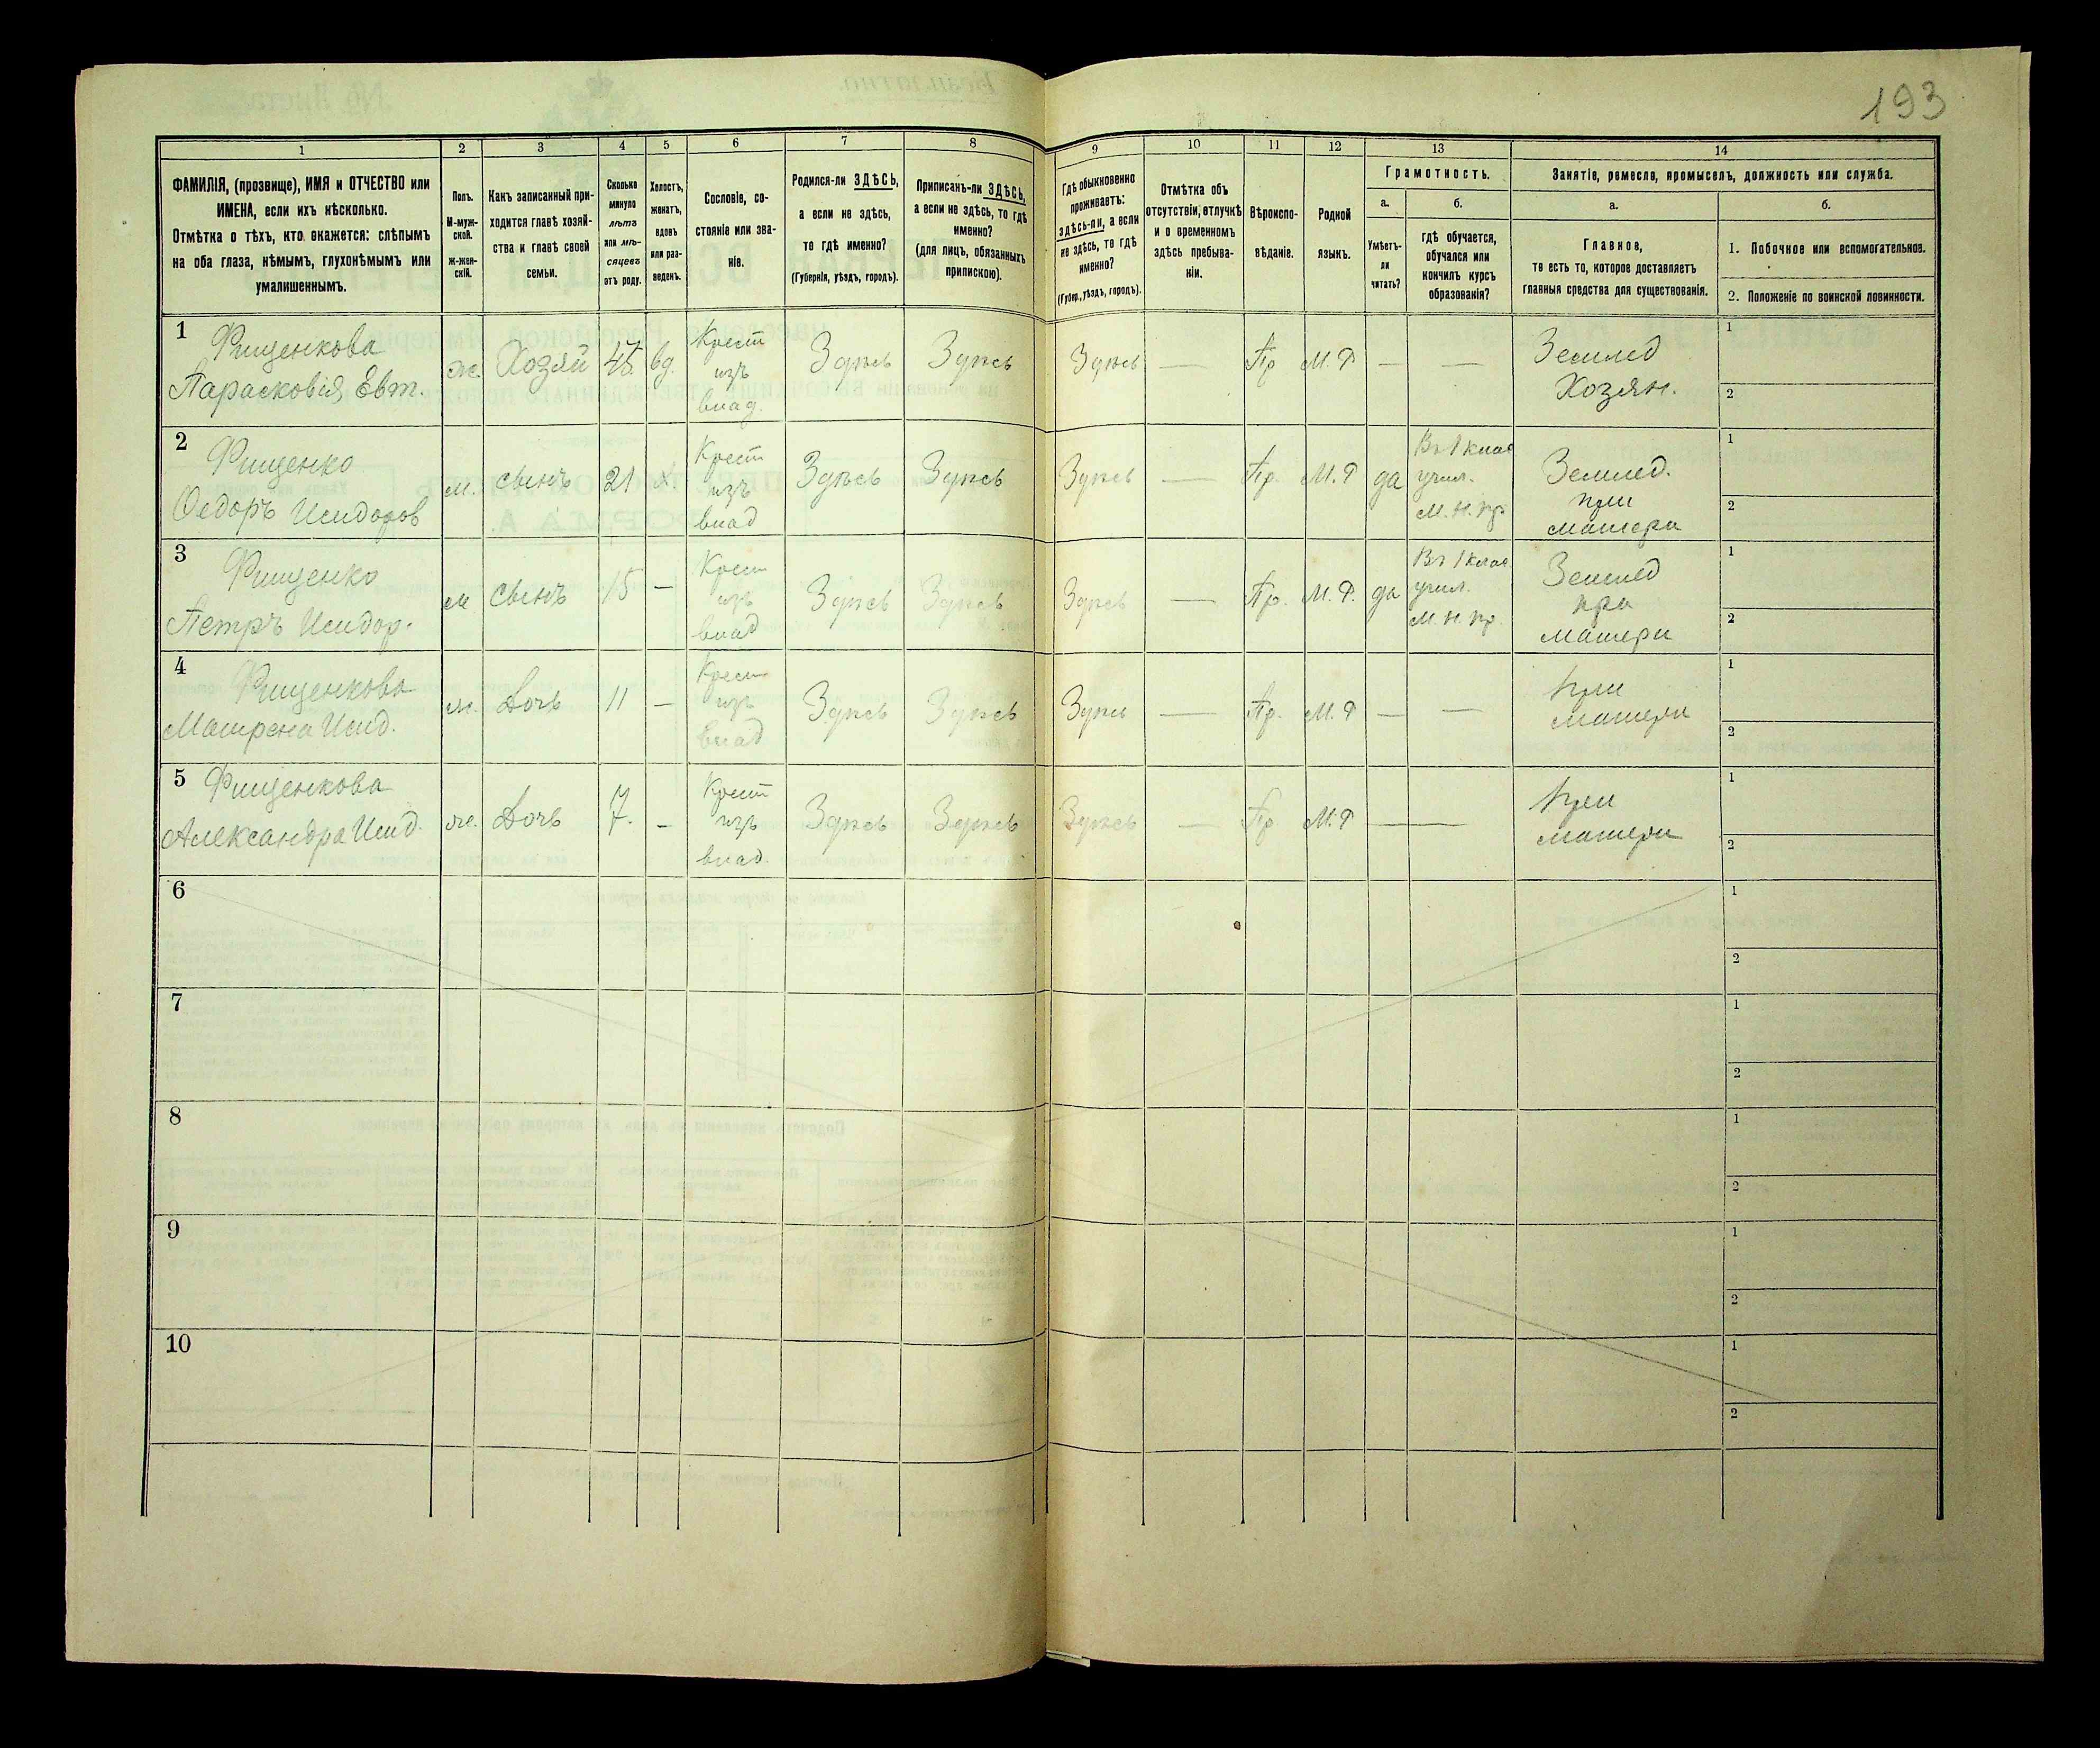 193
1
2
3
4
5
6
7
8
9
10
11
12
13
14
ФАМИЛІЯ, (прозвище), ИМЯ и ОТЧЕСТВО или
ИМЕНА, если ихъ нѣсколько.
Отмѣтка о тѣхъ, кто окажется: слѣпымъ
на оба глаза, нѣмымъ, глухонѣмымъ или
умалишеннымъ.
Полъ.
М-муж-
ской.
Ж-жен-
скій.
Какъ записанный при-
ходится главѣ хозяй-
ства и главѣ своей
семьи.
Сколько
минуло
лѣтъ
или мѣ-
сяцевъ
отъ роду.
Холостъ,
женатъ,
вдовъ
или раз-
веденъ.
Сословіе, со-
стояніе или зва-
ніе.
Родился-ли ЗДѢСЬ,
а если не здѣсь,
то гдѣ именно?
(Губернія, уѣздъ, городъ).
Приписанъ-ли ЗДѢСЬ,
а если не здѣсь, то гдѣ
именно?
(для лицъ, обязанныхъ
припискою).
Гдѣ обыкновенно
проживаетъ:
здѣсь-ли, а если
не здѣсь, то гдѣ
именно?
(Губер., уѣздъ, городъ).
Отмѣтка объ
отсутствіи, отлучкѣ
и о временномъ
здѣсь пребыва-
ніи.
Вѣроиспо-
вѣданіе.
Родной
языкъ.
Грамотность.
а.
Умѣетъ-
ли
читать?
б.
гдѣ обучается,
обучался или
кончилъ курсъ
образованія?
Занятіе, ремесло, промыселъ, должность или служба.
а.
Главное,
то есть то, которое доставляетъ
главныя средства для существованія.
б.
1. Побочное или вспомогательное.
2. Положеніе по воинской повинности.
1
Фищенкова
Парасковія Евт.
ж. Хозяй 45 вд.
Крест
изъ
влад.
Здѣсь Здѣсь Здѣсь — Пр М. Р — —
Землед
Хозян.
1
2
2
Фищенко
Ѳедоръ Исидоров
м. сынъ 21 х.
Крест
изъ
влад
Здѣсь Здѣсь Здѣсь Пр. М. Р да
Въ 1 клас
учил.
М. Н. пр
Землед.
при
матери
1
2
3
Фищенко
Петръ Исидор.
м сынъ 15 —
Крест
изъ
влад
Здѣсь Здѣсь Здѣсь — Пр. М. Р. да
Въ 1 клас
учил.
М. Н. пр.
Землед
при
матери
1
2
4
Фищенкова
Матрена Исид.
ж. Дочь 11 —
Крест
изъ
влад
Здѣсь Здѣсь Здѣсь — Пр. М. Р — —
при
матери
1
2
5
Фищенкова
Александра Исид.
ж. Дочь 7. —
Крест
изъ
влад.
Здѣсь Здѣсь Здѣсь — Пр М. Р —
при
матери
1
2
6
1
2
7
1
2
8
1
2
9
1
2
10
1
2